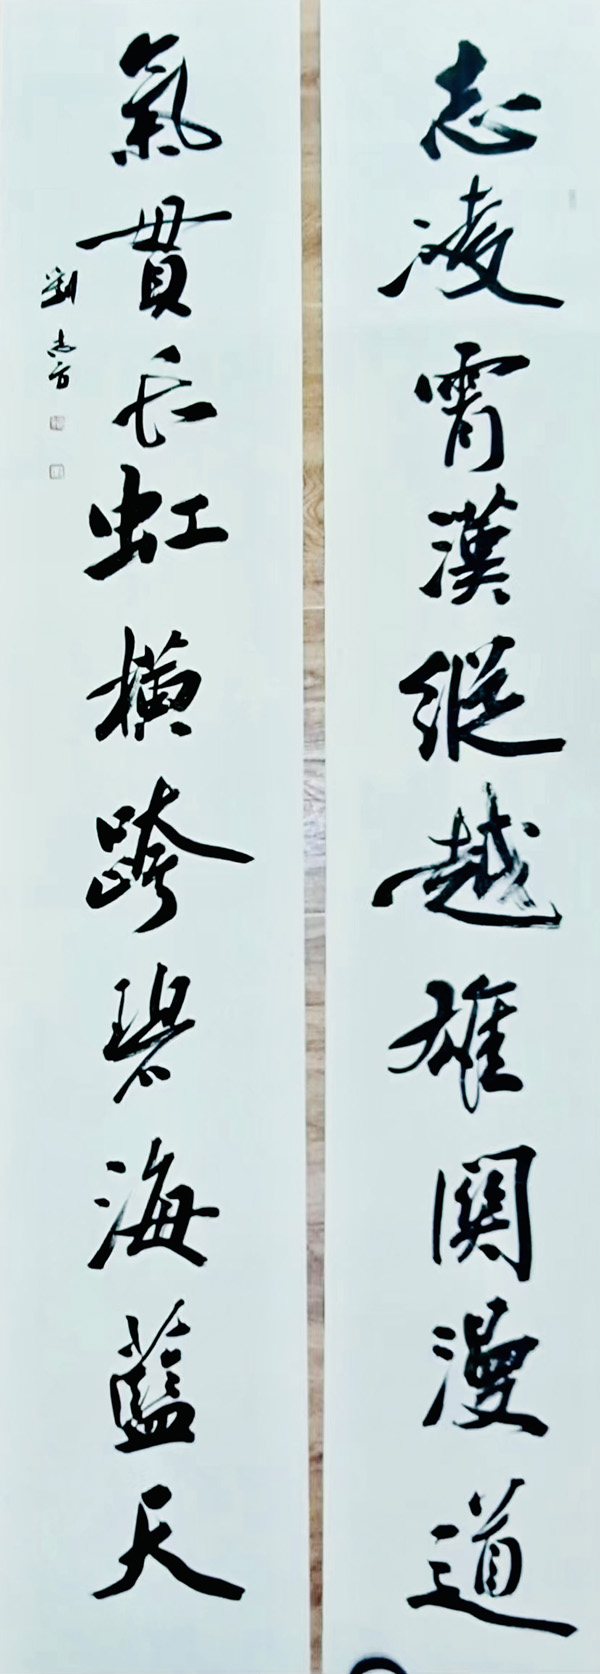 志凌霄漢縱越雄関漫道
氣貫长虹橫跨碧海藍天
劉志方